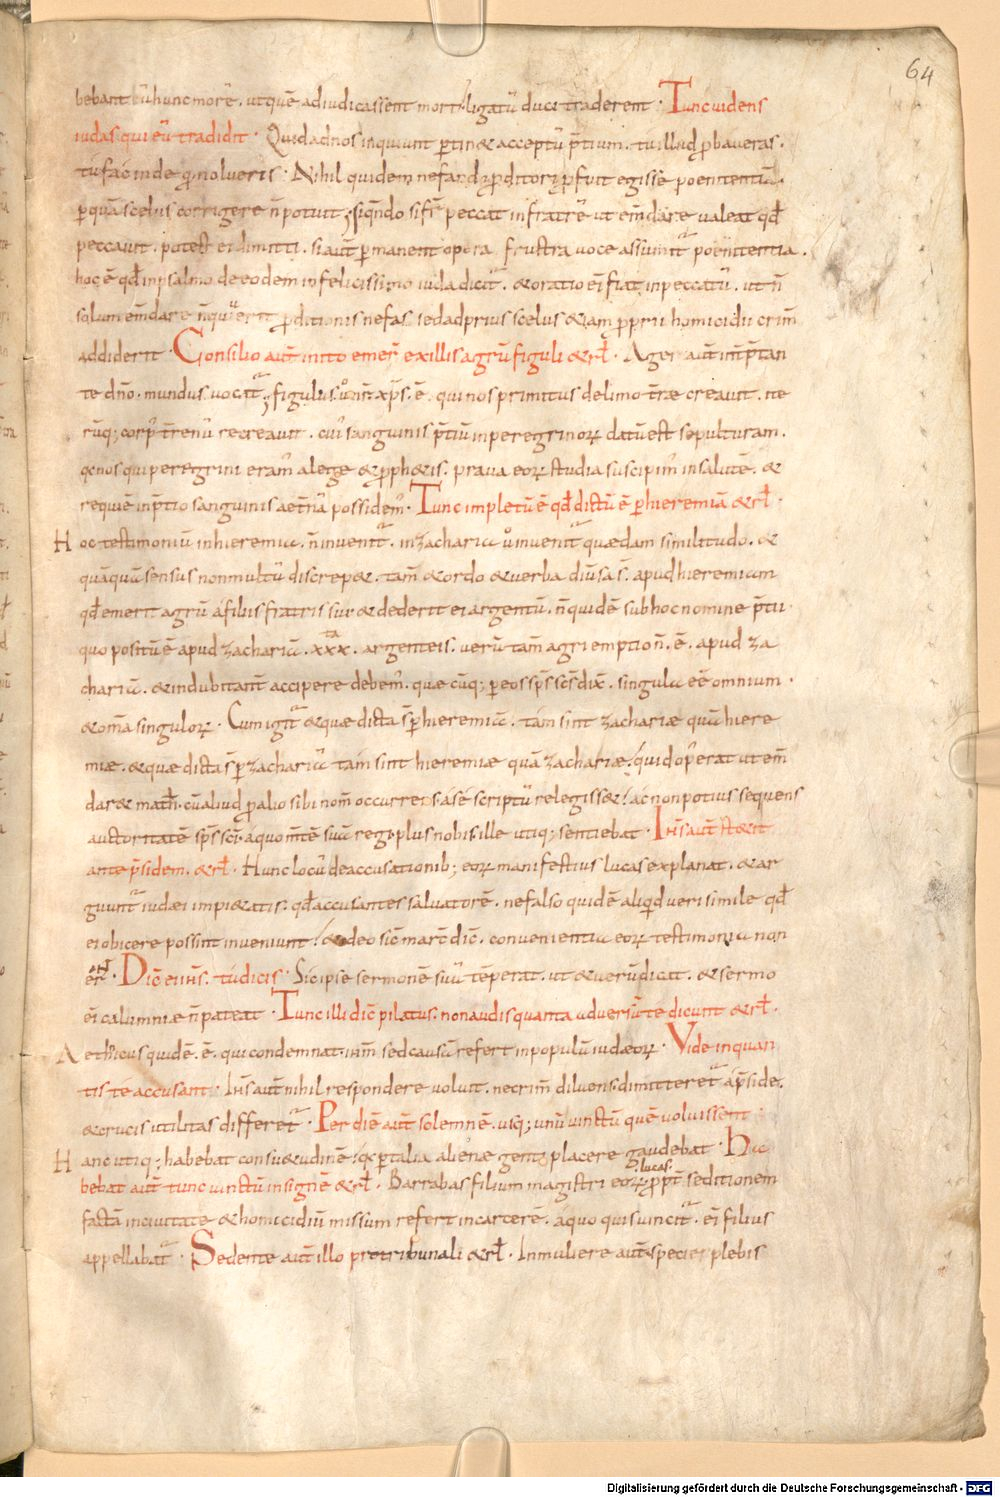 64
bebant eī hunc morē. ut quē adiudicassent morti ligatū duci traderent. Tunc uidens
iudas qui eū tradidit. Quid ad nos inquiunt ꝑtin& acceptū p̄tium. tu illud ꝓbaueras.
tu fac inde qđ nolueris. Nihil quidem nefando ꝑditori ꝓfuit egisse poenitentiā.
ꝑ quā scelus corrigere n̄ potuit; siquando sic fr̄ peccat in fratrē ut em̄dare ualeat qđ
peccauit. potest ei dimitti. si aut̄ ꝑmanent opera frustra uoce assumit̄ poenitentia.
hoc ē qđ in psalmo de eodem infelicissimo iuda dicit̄. & oratio ei fiat in peccatū. ut n̄
solum em̄dare n̄ quierit ꝓditionis nefas. sed ad prius scelus etiam proprii homicidii crim̄
addiderit. Consilio aut̄ inito emer̄ ex illis agrū figuli & rł. Ager aut̄ int̄p̄tan
te dn̄o. mundus uocat̄; figulus u͛o nr̄ xp̄s. ē. qui nos primitus de limo tr̄ae creauit. ite
rūq; corp̄ tr̄enū recreauit. cui͛ sanguinis p̄tiū in peregrinoꝝ datū est sepulturam.
qa nos qui peregrini eram͛ a lege & ꝓph&is. praua eoꝝ studia suscipim͛ in salutē. &
requiē in p̄tio sanguinis aet̄na possidem͛. Tunc impletū ē qđ dictū ē ꝑ hieremiā & rł.
Hoc testimoniū in hieremia. n̄ inuenit̄. in zacharia u͛o inuenit̄ quaedam similitudo. &
quāquā sensus non multū discrep&. tam̄ & ordo & uerba diuersa s̄. apud hieremiam
qđ emerit agrū a filiis fratris sui & dederit ei argentū. n̄ quidē sub hoc nomine p̄tii
quo positū ē apud zachariā. xxx.ta argenteis. uerū tam̄ agri emptio n̄. ē. apud za
chariā. & indubitant̄ accipere debem͛. quaecūq; ꝑ eos sp̄s sc̄s dix̄. singula eē omnium.
& om̄a singuloꝝ. Cum igit̄ & quae dicta s̄ ꝑ hieremiā. tam sint zachariae quā hiere
miae. & quae dicta s̄ ꝑ zachariā tam sint hieremiae quā zachariae. quid op͛ erat ut em̄
dar& math̄. cū aliud ꝓ alio sibi nom̄ occurrens a se scriptū relegiss&. ac non potius sequens
auctoritatē sp̄s sc̄i. a quo m̄tē suā regi plus nobis ille utiq; sentiebat. Ih̄s aut̄ st&it
ante p̄sidem. & rł. Hunc locū de accusationib; eoꝝ manifestius lucas explanat. & ar
guunt̄ iudaei impi&atis. qđ accusantes saluatorē. ne falso quidē aliqd uerisimile qđ
ei obicere possint inueniunt. & ideo sic̄ marc̄ dic̄. conuenientia eoꝝ testimonia non
er̄ant. Dic̄ ei ih̄s. tu dicis. Sic ipse sermonē suū tēperat. ut & uerū dicat. & sermo
ei calumniae n̄ pateat. Tunc illi dic̄ pilatus. non audis quanta aduersū te dicunt & rł.
Aethnicus quidē. ē. qui condemnat ih̄m sed causā refert in populū iudaeoꝝ. Vide in quan
tis te accusant. Ih̄s aut̄ nihil respondere uoluit. ne crim̄ diluens. dimitteret̄ a p̄side.
& crucis utilitas differet̄. Per diē aut̄ solemnē. usq; unū uinctū quē uoluissent.
Hanc utiq; habebat consu&udinē. qa ꝑ talia alienae genti placere gaudebat. Ha
bebat aut̄ tunc uinctū insignē & rł. Barrabas filium magistri eoꝝ lucas. ꝓpt̄ seditionem
factā in ciuitate & homicidiū missum refert in carcerē. a quo quis uincit̄. ei filius
appellabat̄. Sedente aut̄ illo pro tribunali & rł. In muliere aut̄ species plebis
Digitalisierung gefördert durch die Deutsche Forschungsgemeinschaft - DFG